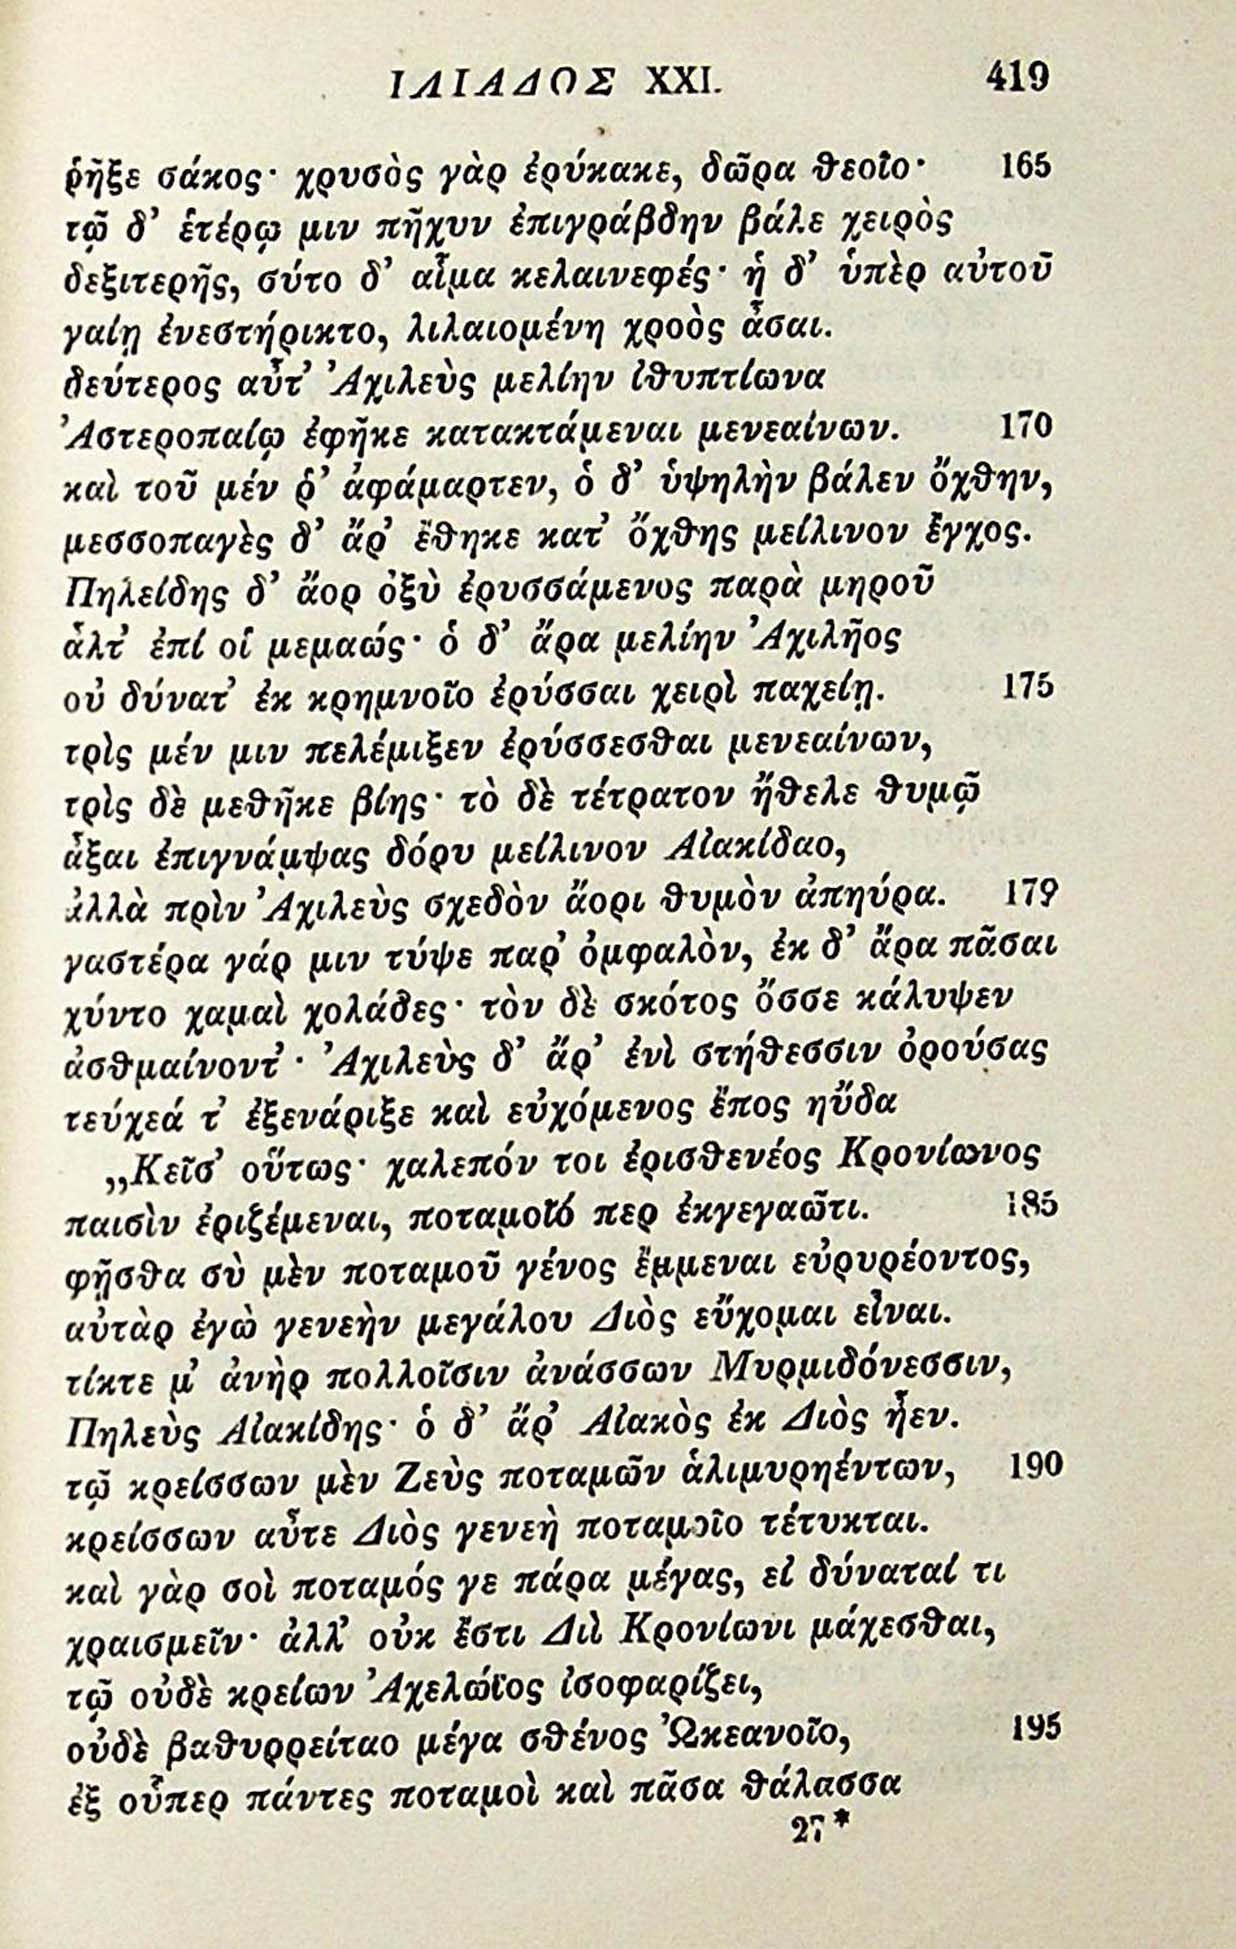 ΙΛΙΑΔΟΣ XXI. 419
ῥῆξε σάκος· χρυσὸς γὰρ ἐρύκακε, δῶρα θεοῖο· 165
τῷ δ’ ἑτέρῳ μιν πῆχυν ἐπιγράβδην βάλε χειρὸς
δεξιτερῆς, σύτο δ’ αἷμα κελαινεφές· ἡ δ’ ὑπὲρ αὐτοῦ
γαίῃ ἐνεστήρικτο, λιλαιομένη χροὸς ἆσαι.
δεύτερος αὖτ’ Ἀχιλεὺς μελίην ἰθυπτίωνα
Ἀστεροπαίῳ ἐφῆκε κατακτάμεναι μενεαίνων. 170
καὶ τοῦ μέν ῥ’ ἀφάμαρτεν, ὁ δ’ ὑψηλὴν βάλεν ὄχθην,
μεσσοπαγὲς δ’ ἄρ’ ἔθηκε κατ’ ὄχθης μείλινον ἔγχος.
Πηλείδης δ’ ἄορ ὀξὺ ἐρυσσάμενος παρὰ μηροῦ
ἆλτ’ ἐπί οἱ μεμαώς· ὁ δ’ ἄρα μελίην Ἀχιλῆος
οὐ δύνατ’ ἐκ κρημνοῖο ἐρύσσαι χειρὶ παχείῃ. 175
τρὶς μέν μιν πελέμιξεν ἐρύσσεσθαι μενεαίνων,
τρὶς δὲ μεθῆκε βίης· τὸ δὲ τέτρατον ἤθελε θυμῷ
ἆξαι ἐπιγνάμψας δόρυ μείλινον Αἰακίδαο,
ἀλλὰ πρὶν Ἀχιλεὺς σχεδὸν ἄορι θυμὸν ἀπηύρα. 179
γαστέρα γάρ μιν τύψε παρ’ ὀμφαλὸν, ἐκ δ’ ἄρα πᾶσαι
χύντο χαμαὶ χολάδες· τὸν δὲ σκότος ὄσσε κάλυψεν
ἀσθμαίνοντ’· Ἀχιλεὺς δ’ ἄρ’ ἐνὶ στήθεσσιν ὀρούσας
τεύχεά τ’ ἐξενάριξε καὶ εὐχόμενος ἔπος ηὔδα
„Κεῖσ’ οὕτως· χαλεπόν τοι ἐρισθενέος Κρονίωνος
παισὶν ἐριζέμεναι, ποταμοῖό περ ἐκγεγαῶτι. 185
φῇσθα σὺ μὲν ποταμοῦ γένος ἔμμεναι εὐρυρέοντος,
αὐτὰρ ἐγὼ γενεὴν μεγάλου Διὸς εὔχομαι εἶναι.
τίκτε μ’ ἀνὴρ πολλοῖσιν ἀνάσσων Μυρμιδόνεσσιν,
Πηλεὺς Αἰακίδης· ὁ δ’ ἄρ’ Αἰακὸς ἐκ Διὸς ἦεν.
τῷ κρείσσων μὲν Ζεὺς ποταμῶν ἁλιμυρηέντων, 190
κρείσσων αὖτε Διὸς γενεὴ ποταμοῖο τέτυκται.
καὶ γὰρ σοὶ ποταμός γε πάρα μέγας, εἰ δύναταί τι
χραισμεῖν· ἀλλ’ οὐκ ἔστι Διὶ Κρονίωνι μάχεσθαι,
τῷ οὐδὲ κρείων Ἀχελώϊος ἰσοφαρίζει,
οὐδὲ βαθυρρείταο μέγα σθένος Ὠκεανοῖο, 195
ἐξ οὗπερ πάντες ποταμοὶ καὶ πᾶσα θάλασσα
27*